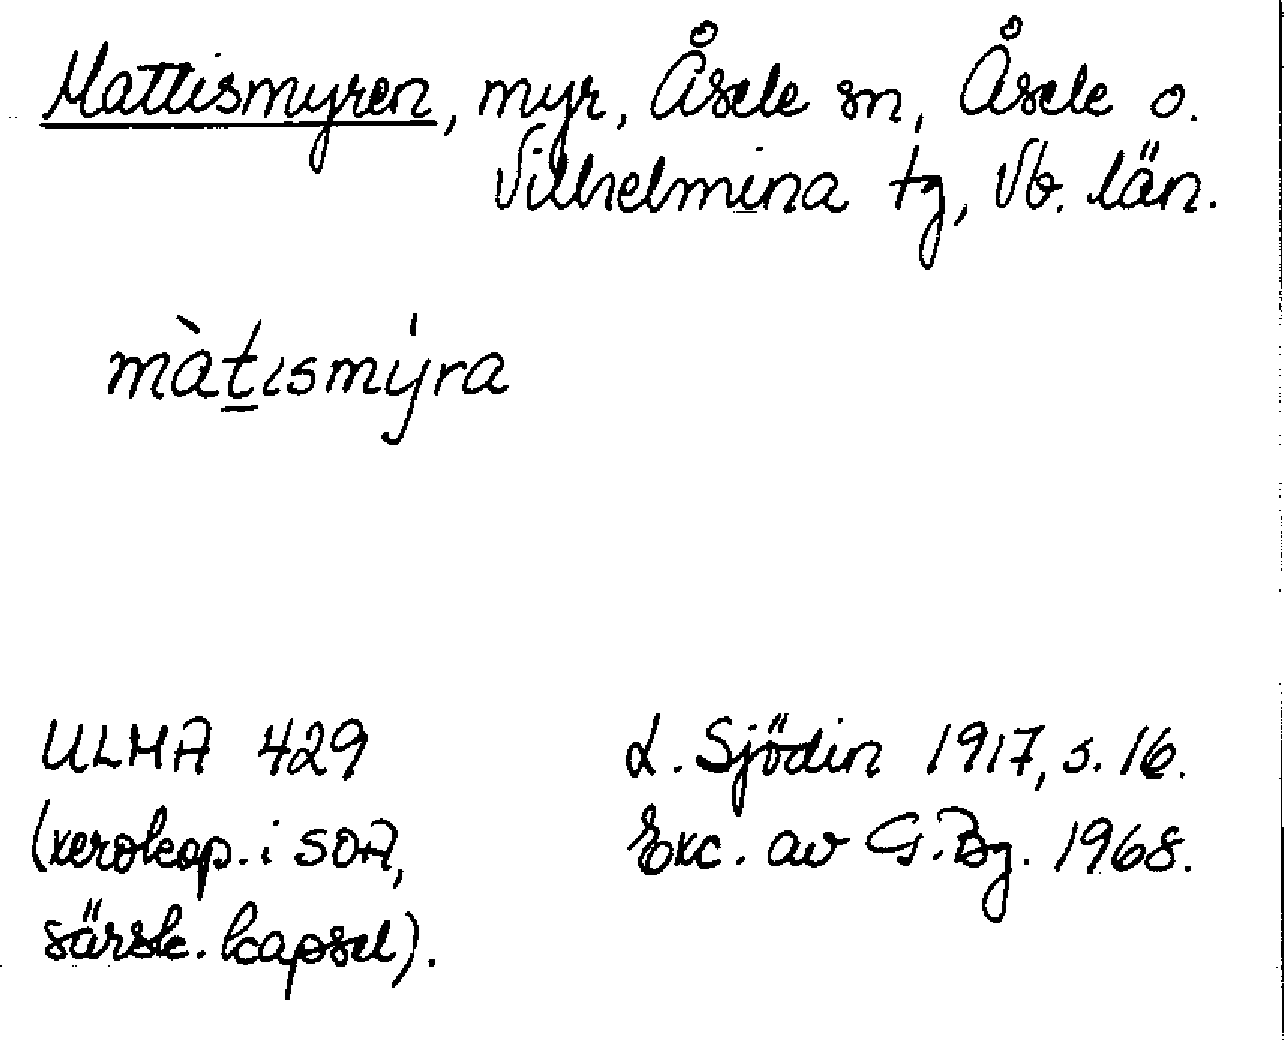 Mattismyren, myr, Åsele sn, Åsele o.
Vilhelmina tg, Vb. län.
màt̲ısmy̍ra
ULMA 429
(xerokop. i SOA,
särsk. kapsel).
L. Sjödin 1917, s. 16.
Exc. av G. Bg. 1968.